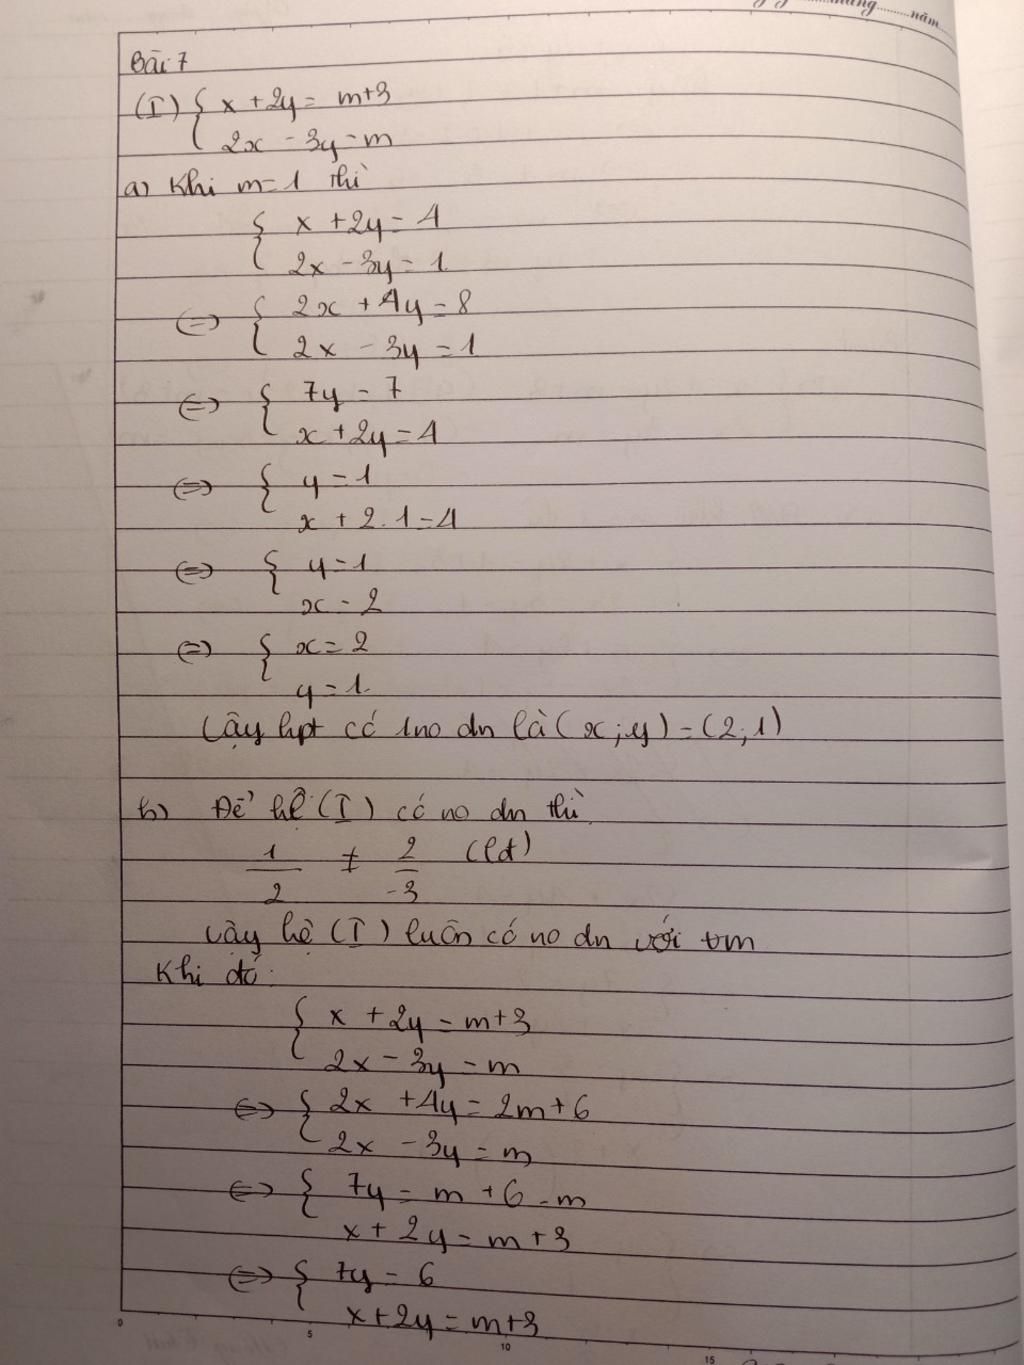 năm
Bài 7
(I) { x + 2y = m+3
2x - 3y = m
a) Khi m = 1 thì
{ x + 2y = 4
2x - 3y = 1
(=) { 2x + 4y = 8
2x - 3y = 1
(=) { 7y = 7
x + 2y = 4
(=) { y = 1
x + 2.1 = 4
(=) { y = 1
x = 2
(=) { x = 2
y = 1
Vậy hpt có 1no dn là (x;y) = (2;1)
b) Để hệ (I) có no dn thì
1/2 ≠ 2/-3 (lđ)
Vậy hệ (I) luôn có no dn với ∀m
Khi đó:
{ x + 2y = m+3
2x - 3y = m
<=> { 2x + 4y = 2m+6
2x - 3y = m
<=> { 7y = m + 6 - m
x + 2y = m+3
<=> { 7y = 6
x + 2y = m+3
0 5 10 15